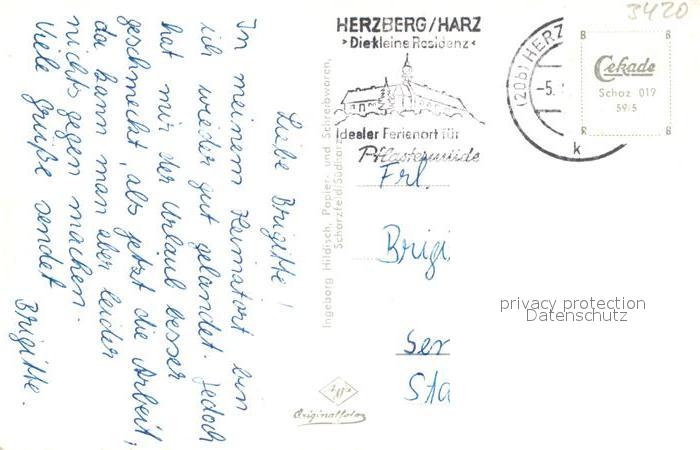 Liebe Brigitte!
In meinem Heimatort bin
ich wieder gut gelandet. Jedoch
hat mir der Urlaub besser
geschmeckt, als jetzt die Arbeit,
da kann man aber leider
nichts gegen machen.
Viele Grüße sendet
Brigitte.
Ingeborg Hildisch, Papier- und Schreibwaren,
Scharzfeld/Südharz
Originalfoto
HERZBERG/HARZ
›Die kleine Residenz‹
Idealer Ferienort für
Pflastermüde
(20b) HERZ
-5.
k
3420
B B
Cekade
Schaz 019
59/5
R B
Frl.
Brigi
Ser
Sta
privacy protection
Datenschutz